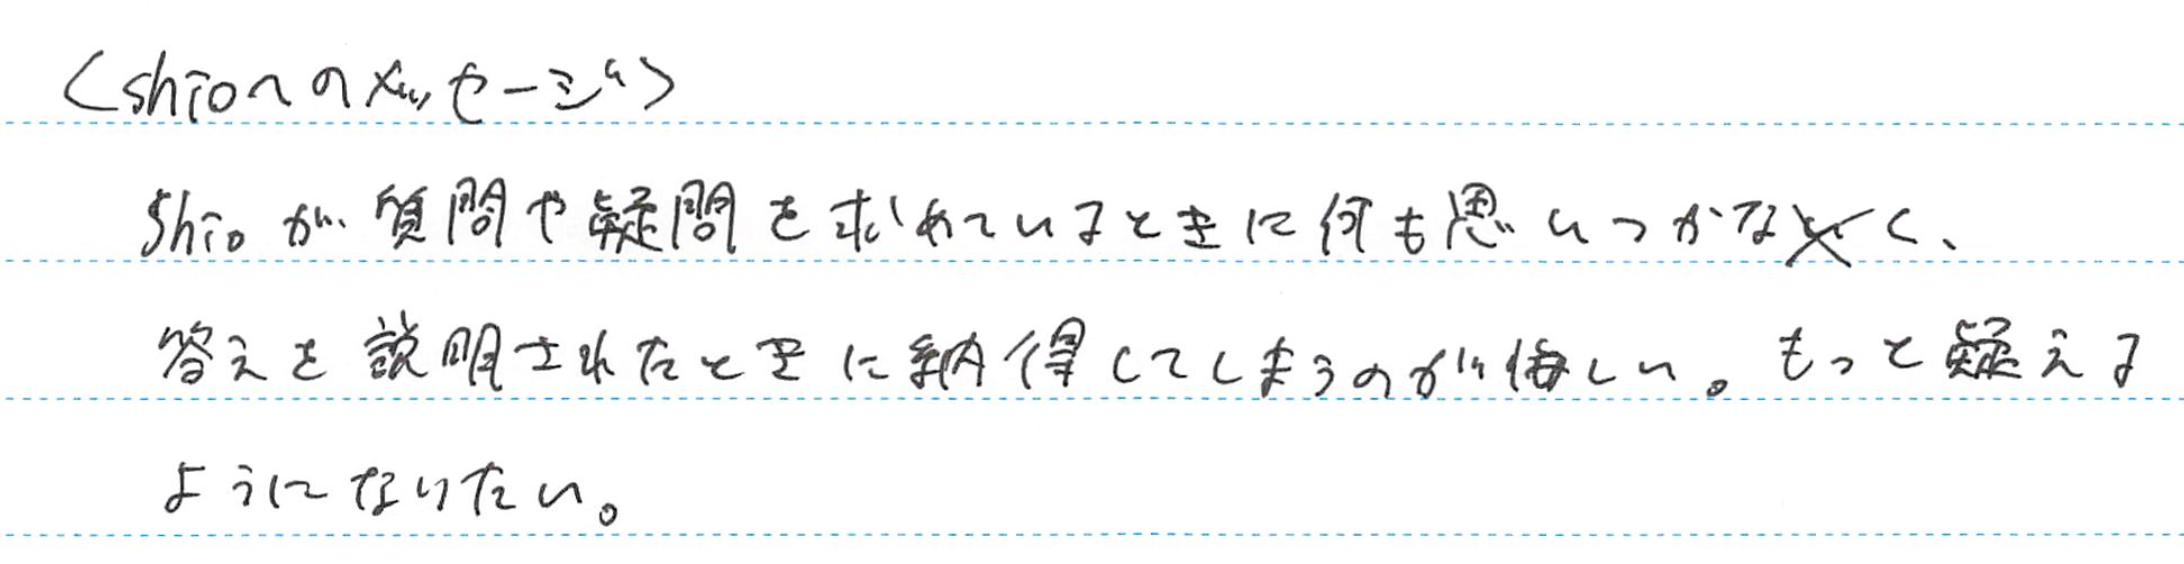 <shioへのメッセージ>
shioが質問や疑問を求めているときに何も思いつかなく、
答えを説明されたときに納得してしまうのが悔しい。もっと疑える
ようになりたい。